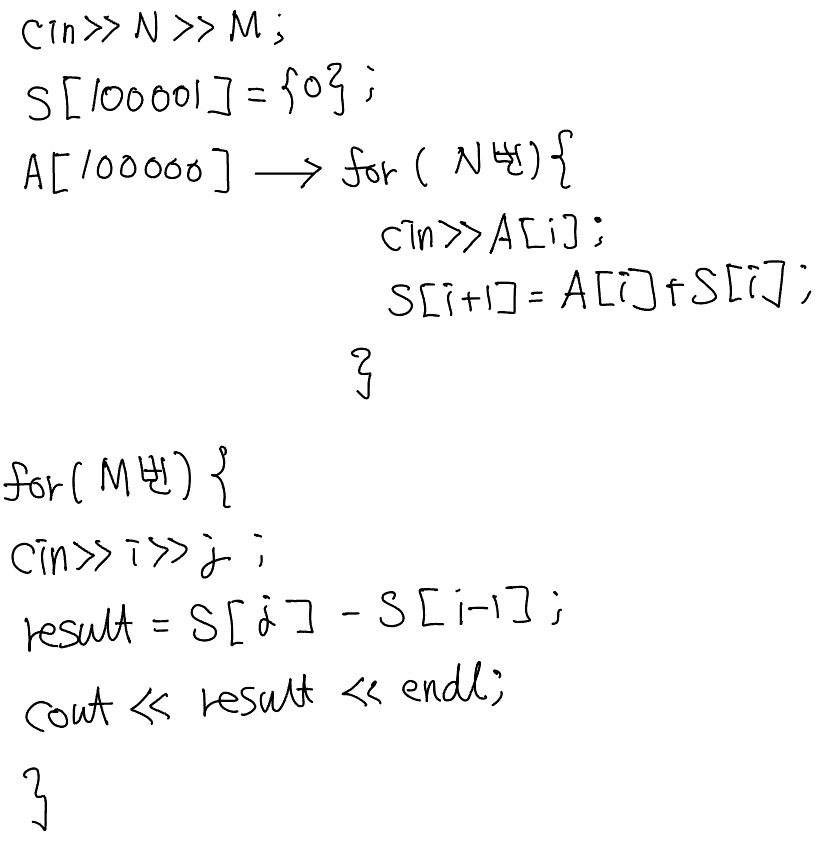 cin>> N >> M ;
S[100001] = {0} ;
A[100000] → for ( N번){
cin>> A[i] ;
S[i+1] = A[i]+S[i] ;
}
for( M번) {
cin>> i >> j ;
result = S[j] - S[i-1] ;
cout << result << endl;
}